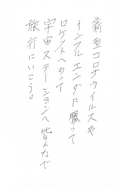 新型コロナウイルスや
インフルエンザに罹って
ロケットへのって
宇宙ステーションへ皆んなで
旅行にいこう。